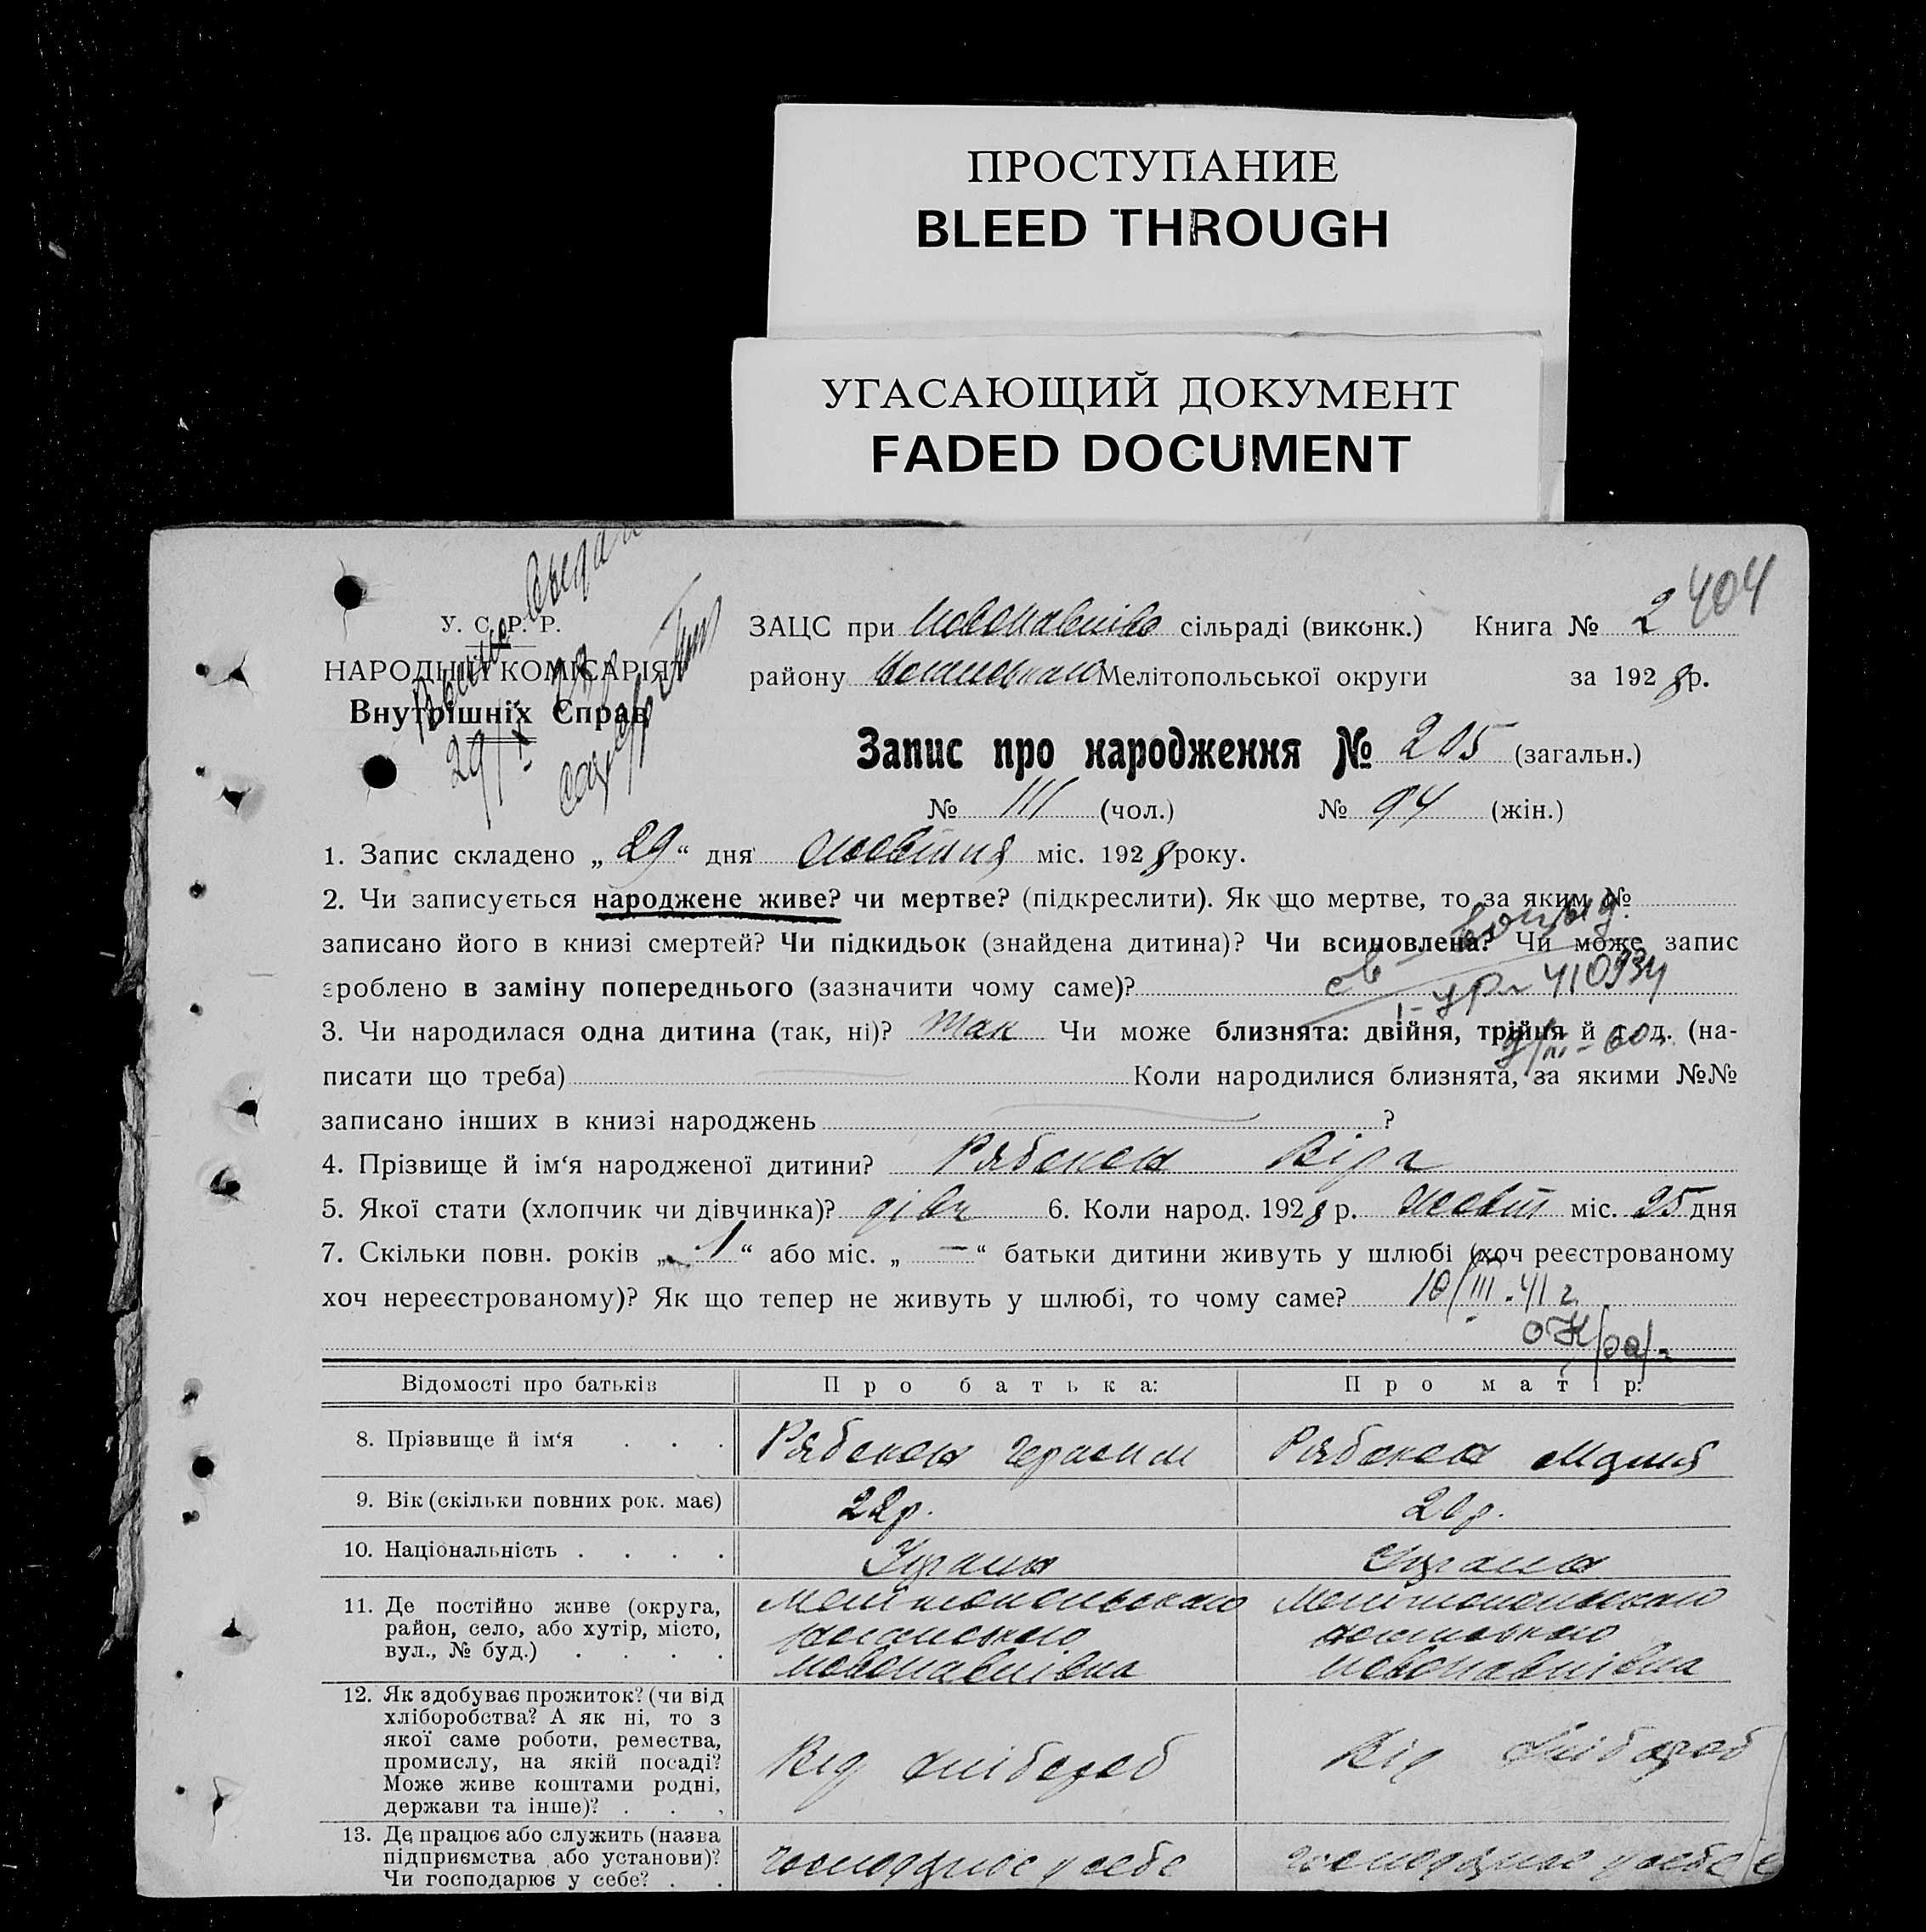 ПРОСТУПАНИЕ
BLEED THROUGH
УГАСАЮЩИЙ ДОКУМЕНТ
FADED DOCUMENT
404
У. С. Р. Р.
НАРОДНІЙ КОМІСАРІЯТ
Внутрішніх Справ
29/I
ЗАЦС при Новопавлівс сільраді (виконк.) Книга № 2
району Мелітопольської округи за 1928 р.
Запис про народження № 205 (загальн.)
№ 111 (чол.) № 94 (жін.)
1. Запис складено „ 29 “ дня жовтня міс. 1928 року.
2. Чи записується народжене живе? чи мертве? (підкреслити). Як що мертве, то за яким №
записано його в книзі смертей? Чи підкидьок (знайдена дитина)? Чи всиновлена? Чи може запис
зроблено в заміну попереднього (зазначити чому саме)?
410934
3. Чи народилася одна дитина (так, ні)? так Чи може близнята: двійня, трійня й т. д. (на-
писати що треба) Коли народилися близнята, за якими №№
записано інших в книзі народжень ?
4. Прізвище й ім‘я народженої дитини? Рябокон Віра
5. Якої стати (хлопчик чи дівчинка)? дівч 6. Коли народ. 1928 р. жовт міс. 25 дня
7. Скільки повн. років „ 1 “ або міс. „ — “ батьки дитини живуть у шлюбі (хоч реєстрованому
хоч нереєстрованому)? Як що тепер не живуть у шлюбі, то чому саме?
10/III.41 г.
Відомості про батьків Про батька: Про матір:
8. Прізвище й ім‘я . . . Рябокон Герасим Рябокон Марія
9. Вік (скільки повних рок. має) 22 р. 20 р.
10. Національність . . . . Украин Украин
11. Де постійно живе (округа, Мелітопольского Мелітопольского
район, село, або хутір, місто,
вул., № буд.) . . . . Новопавлівка Новопавлівка
12. Як здобуває прожиток? (чи від
хліборобства? А як ні, то з
якої саме роботи, ремества, Від хлібороб Від хлібороб
промислу, на якій посаді?
Може живе коштами родні,
держави та інше)? . . .
13. Де працює або служить (назва
підприємства або установи)? господарює у себе господарює у себе
Чи господарює у себе? . .